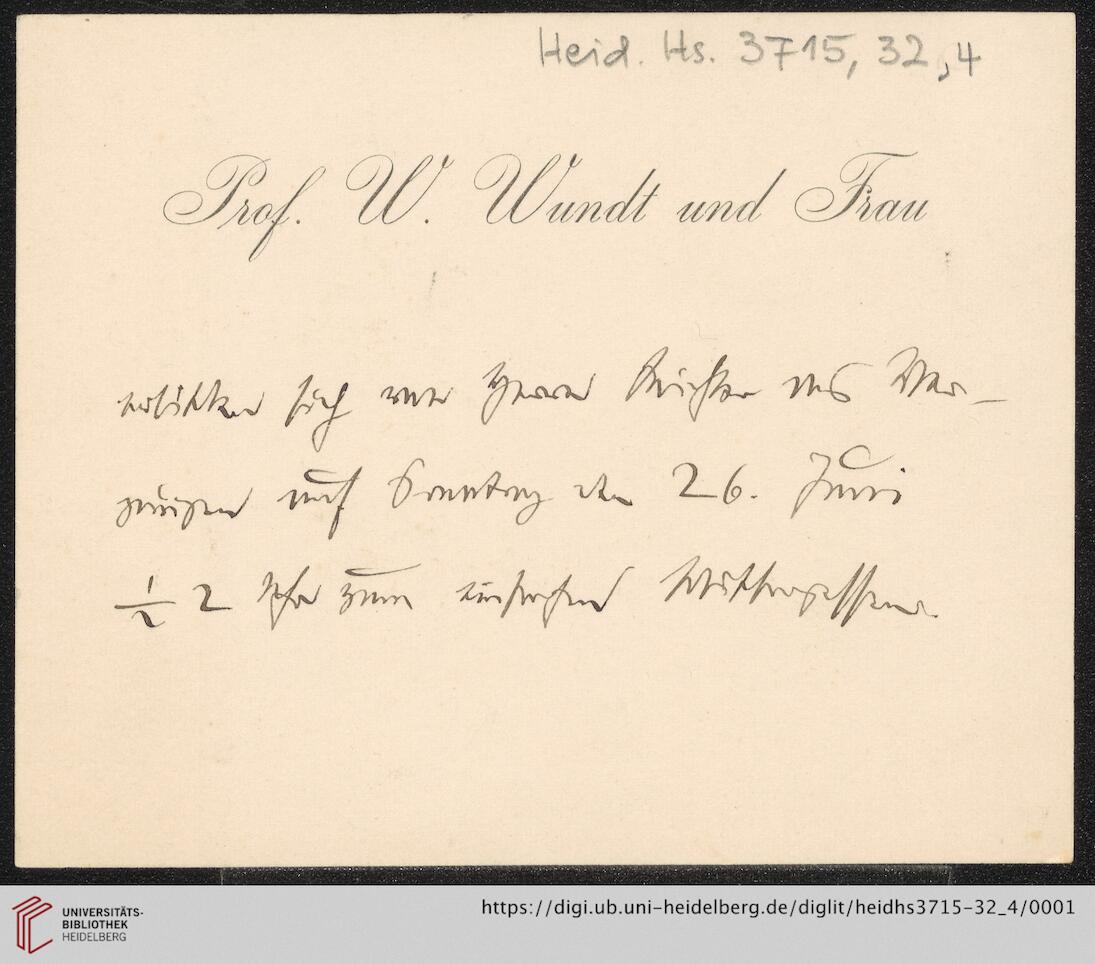 Heid. Hs. 3715, 32,4
Prof. W. Wundt und Frau
erbitten sich von Herrn das Ver-
gnügen auf Sonntag den 26. Juni
1/2 2 Uhr zum einfachen Mittagessen.
UNIVERSITÄTS-
BIBLIOTHEK
HEIDELBERG
https://digi.ub.uni-heidelberg.de/diglit/heidhs3715-32_4/0001